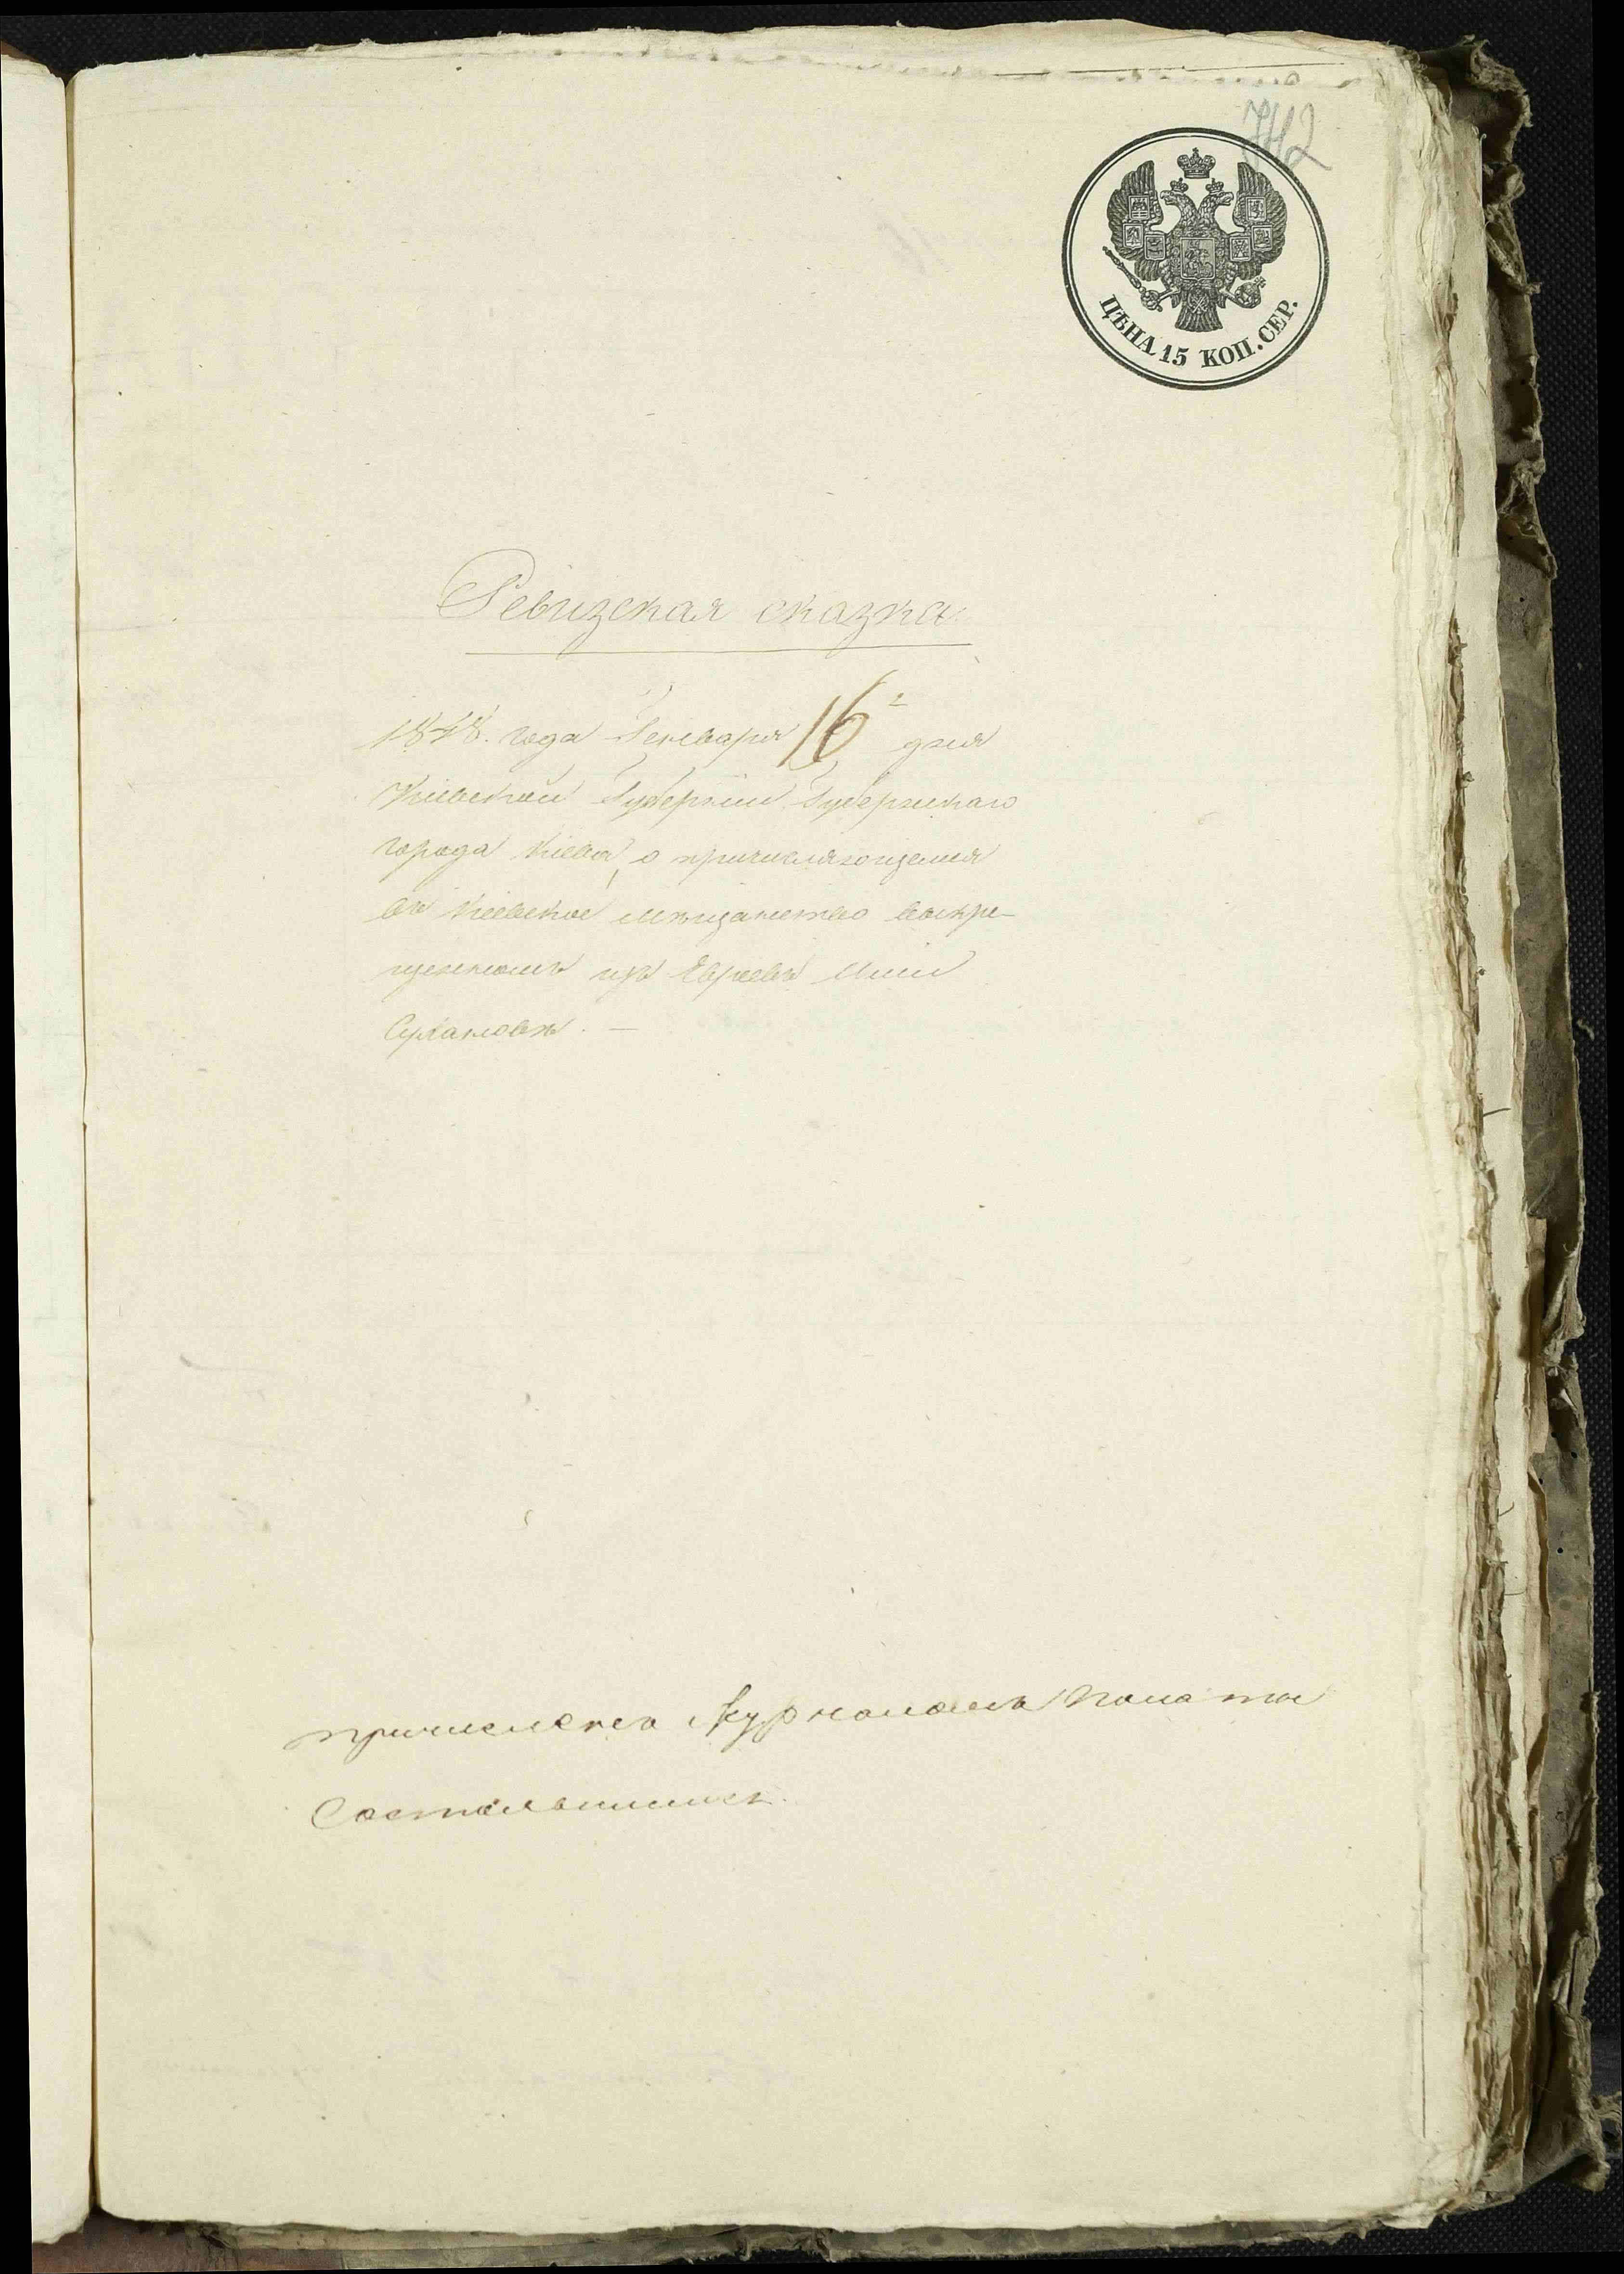 742
ЦѢНА 15 КОП. СЕР.
Ревизская сказка
1848. года Генваря 16 дня
Кіевской Губерніи Губернскаго
города Кіева, о причисляющемся
въ Кіевское мѣщанство выкре-
щенномъ изъ Евреевъ
причисленъ Журналомъ Палаты
Состоявшимся.